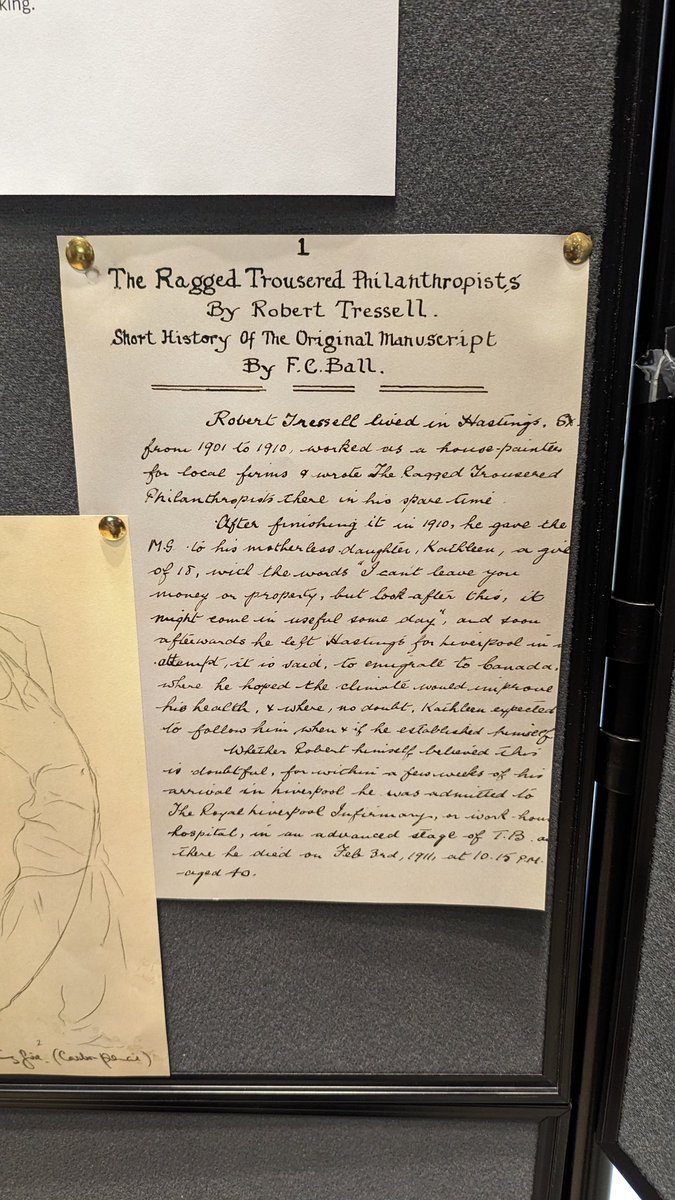 king.
1
The Ragged Trousered Philanthropists
By Robert Tressell.
Short History Of The Original Manuscript
By F.C. Ball.
Robert Tressell lived in Hastings, Sx.
from 1901 to 1910, worked as a house-painter
for local firms & wrote The Ragged Trousered
Philanthropists there in his spare time.
After finishing it in 1910, he gave the
M.S. to his motherless daughter, Kathleen, a
of 18, with the words "I can't leave you
money or property, but look after this, it
might come in useful some day", and soon
afterwards he left Hastings for Liverpool in
attempt, it is said, to emigrate to Canada,
where he hoped the climate would improve
his health, & where, no doubt, Kathleen expected
to follow him when & if he established himself
Whether Robert himself believed this
is doubtful, for within a few weeks of his
arrival in Liverpool he was admitted to
The Royal Liverpool Infirmary, or work-hou
hospital, in an advanced stage of T.B. a
there he died on Feb 3rd, 1911, at 10.15 P.M.
aged 40.
(Carbon pencil)